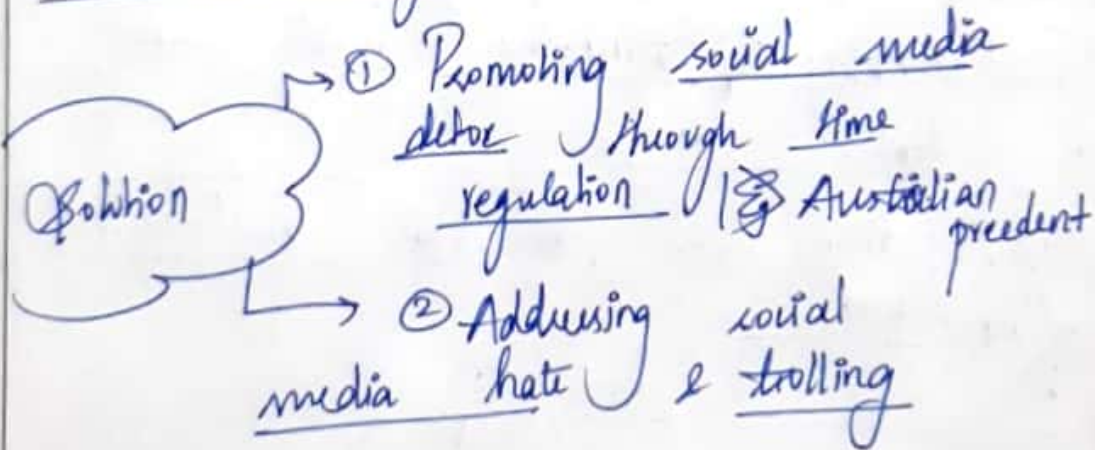 ① Promoting social media
detox through time
regulation | Australian
precedent
Solution
② Addressing social
media hate & trolling